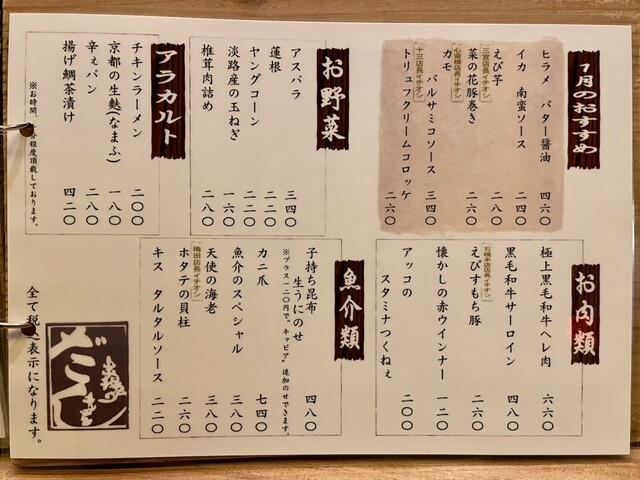 1月のおすすめ
ヒラメ　バター醤油　四六〇
イカ　南蛮ソース　二四〇
えび芋　二八〇
三宮店長イチオシ
菜の花豚巻き　二六〇
心斎橋店長イチオシ
カモ
バルサミコソース　三四〇
十三店長イチオシ
トリュフクリームコロッケ　二六〇
お野菜
アスパラ　三四〇
蓮根　二二〇
ヤングコーン　二二〇
淡路産の玉ねぎ　一六〇
椎茸肉詰め　二八〇
アラカルト
チキンラーメン　二〇〇
京都の生麩(なまふ)　一八〇
辛ぇパン　二八〇
揚げ鯛茶漬け　四二〇
※お時間、
分程度頂戴しております。
お肉類
極上黒毛和牛ヘレ肉　六六〇
黒毛和牛サーロイン　四八〇
石橋本店店長イチオシ
えびすもち豚　二六〇
懐かしの赤ウインナー　一二〇
アッコの
スタミナつくねぇ　二〇〇
魚介類
子持ち昆布
生うにのせ　四八〇
※プラス一二〇円で、キャビア追加のせできます。
カニ爪　七四〇
魚介のスペシャル　三八〇
天使の海老　三八〇
梅田店長イチオシ
ホタテの貝柱　二六〇
キス　タルタルソース　二二〇
全て税込表示になります。